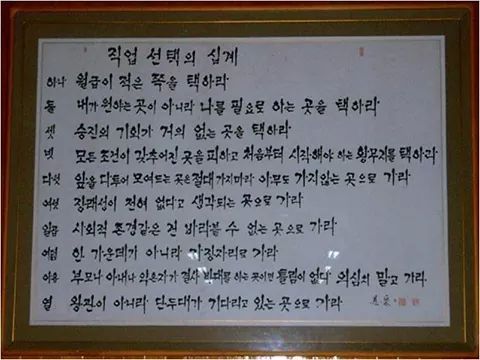 직업 선택의 십계
하나 월급이 적은 쪽을 택하라
둘 내가 원하는 곳이 아니라 나를 필요로 하는 곳을 택하라
셋 승진의 기회가 거의 없는 곳을 택하라
넷 모든 조건이 갖추어진 곳을 피하고 처음부터 시작해야 하는 황무지를 택하라
다섯 앞을 다투어 모여드는 곳은 절대 가지마라 아무도 가지않는 곳으로 가라
여섯 장래성이 전혀 없다고 생각되는 곳으로 가라
일곱 사회적 존경같은 건 바라볼 수 없는 곳으로 가라
여덟 한 가운데가 아니라 가장자리로 가라
아홉 부모나 아내나 약혼자가 결사 반대를 하는 곳이면 틀림이 없다 의심치 말고 가라
열 왕관이 아니라 단두대가 기다리고 있는 곳으로 가라